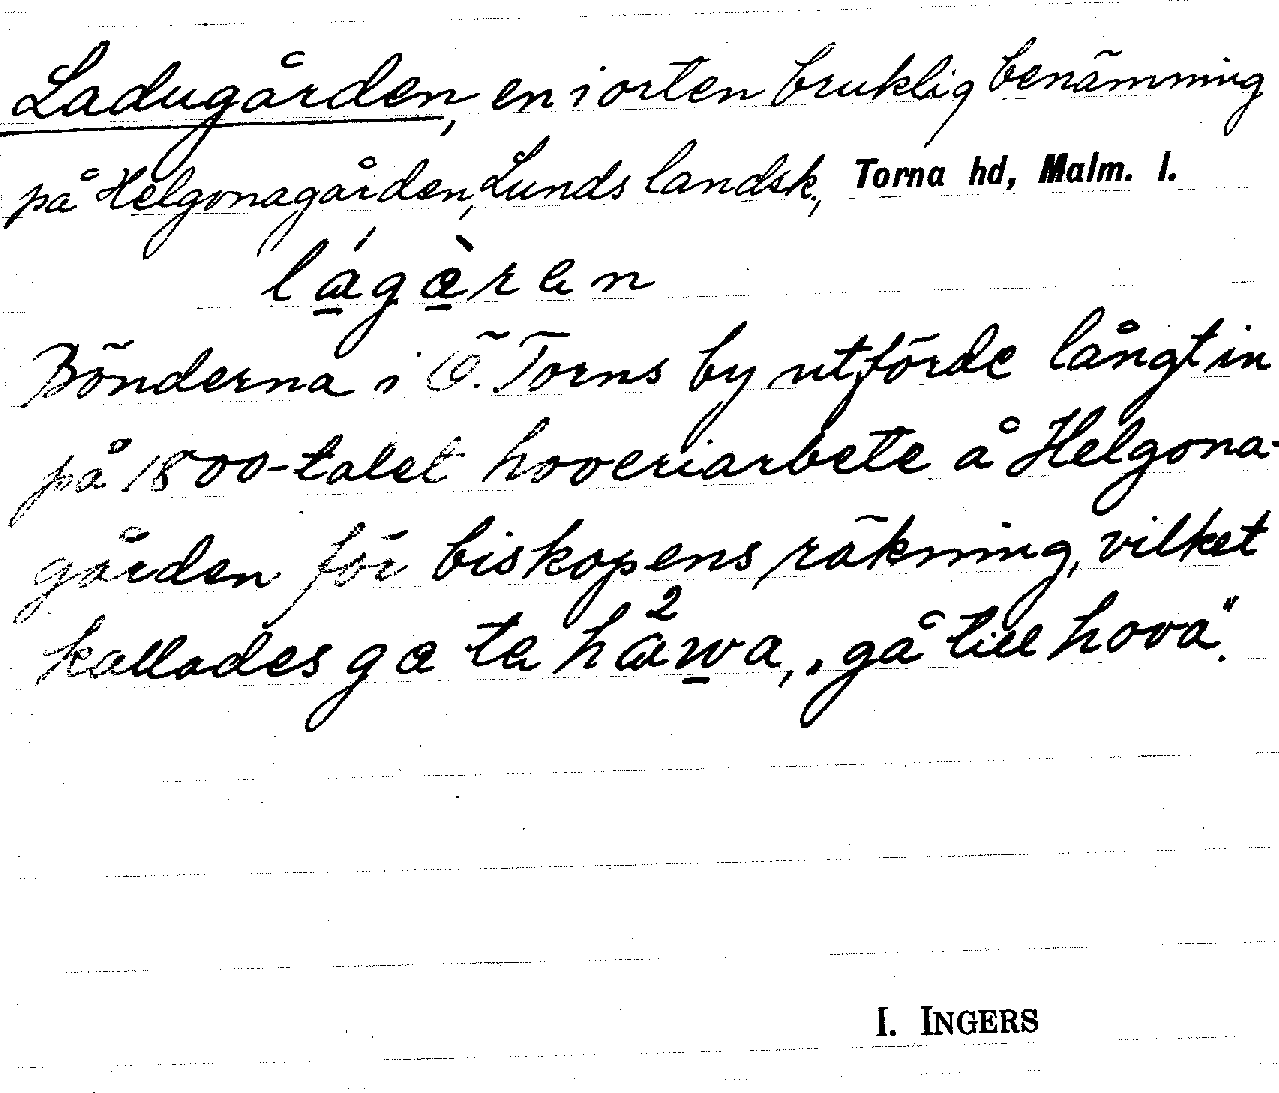 Ladugården, en i orten bruklig benämning
på Helgonagården, Lunds landsk., Torna hd, Malm. l.
lágæ̀ran
Bönderna i Ö. Torns by utförde långt in
på 1800-talet hoveriarbete å Helgona-
gården för biskopens räkning, vilket
kallades gɑ ta hå²wa, „gå till hova".
I. INGERS